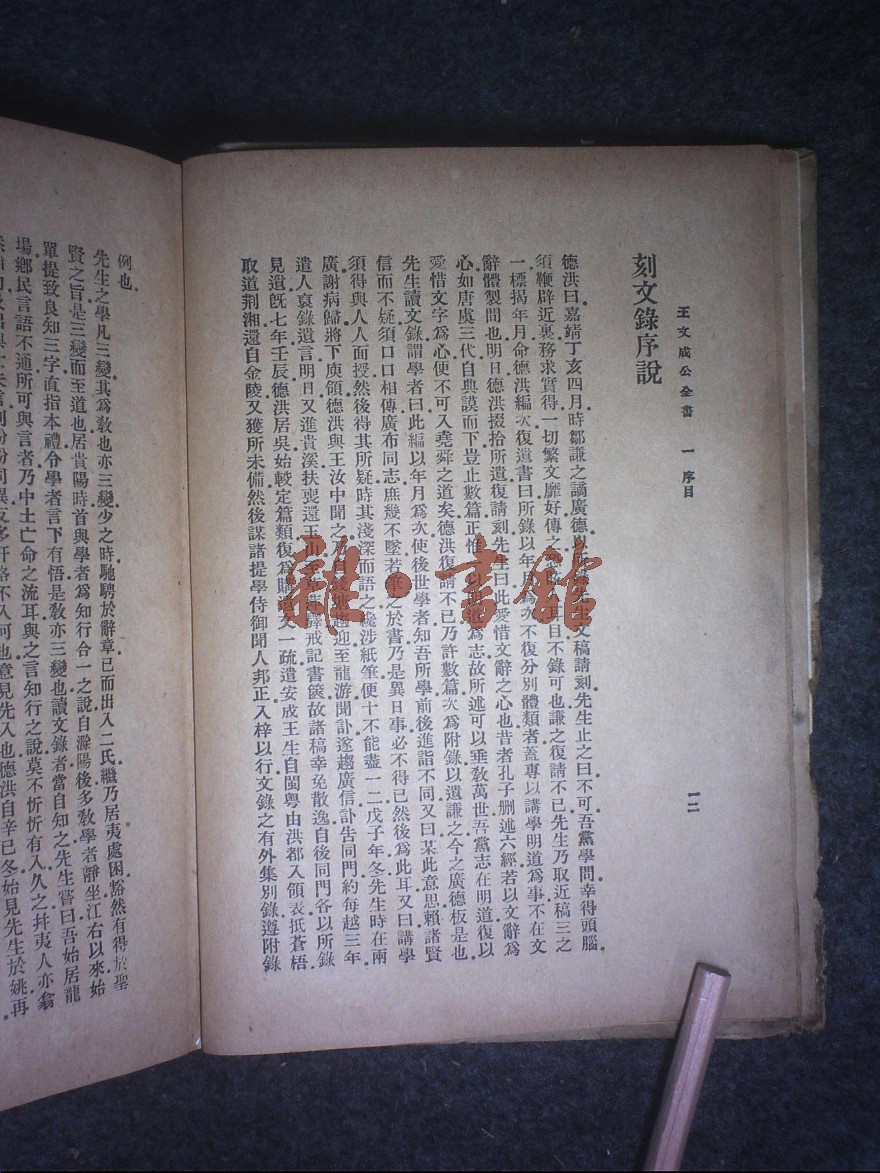 王文成公全書　一　序目
一二
刻文錄序說
德洪曰嘉靖丁亥四月時鄒謙之謫廣德以所錄先生文稿請刻先生止之曰不可吾黨學問幸得頭腦
須鞭辟近裏務求實得一切繁文靡好傳之恐眩人耳目不錄可也謙之復請不已先生乃取近稿三之
一標揭年月命德洪編次復遺書曰所錄以年月為次不復分別體類者蓋專以講學明道為事不在文
辭體製間也明日德洪掇拾所遺復請刻先生曰此愛惜文辭之心也昔者孔子刪述六經若以文辭為
心如唐虞三代自典謨而下豈止數篇正惟以明道為志故所述可以垂教萬世吾黨志在明道復以
愛惜文字為心便不可入堯舜之道矣德洪復請不已乃許數篇次為附錄以遺謙之今之廣德板是也
先生讀文錄謂學者曰此編以年月為次使後世學者知吾所學前後進詣不同又曰某此意思賴諸賢
信而不疑須口口相傳廣布同志庶幾不墜若筆之於書乃是異日事必不得已然後為此耳又曰講學
須得與人人面授然後得其所疑時其淺深而語之纔涉紙筆便十不能盡一二戊子年冬先生時在兩
廣謝病歸將下庾領德洪與王汝中聞之乃自錢塘趨迎至龍游聞訃遂趨廣信訃告同門約每越三年
遣人裒錄遺言明日又進貴溪扶喪還玉山至草萍驛戒記書篋故諸稿幸免散逸自後同門各以所錄
見遺既七年壬辰德洪居吳始較定篇類復為購遺文一疏遣安成王生自閩粵由洪都入領表抵蒼梧
取道荆湘還自金陵又獲所未備然後謀諸提學侍御聞人邦正入梓以行文錄之有外集別錄遵附錄
例也
先生之學凡三變其為教也亦三變少之時馳騁於辭章已而出入二氏繼乃居夷處困豁然有得於聖
賢之旨是三變而至道也居貴陽時首與學者為知行合一之說自滁陽後多教學者靜坐江右以來始
單提致良知三字直指本禮令學者言下有悟是教亦三變也讀文錄者當自知之先生嘗曰吾始居龍
場鄉民言語不通所可與言者乃中土亡命之流耳與之言知行之說莫不忻忻有入久之并夷人亦翕
異反多扞格不入何也意見先入也德洪自辛巳冬始見先生於姚再
雜·書館